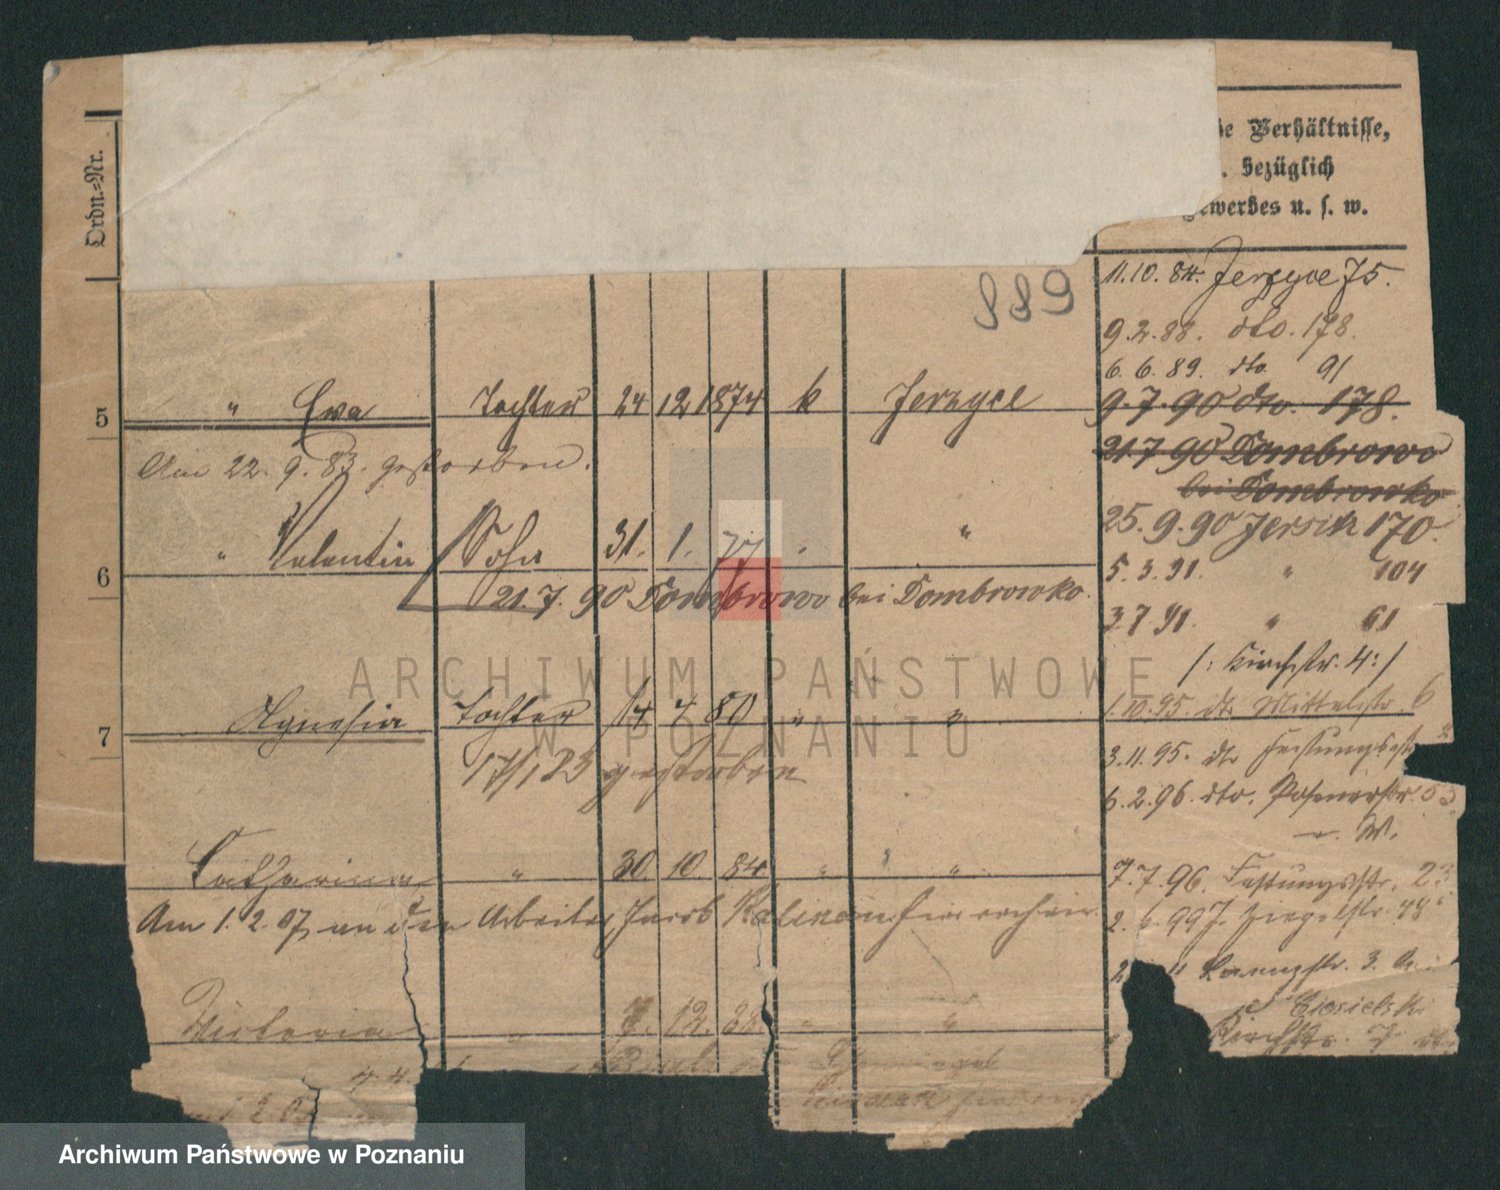 Ordn.-Nr.
he Verhältnisse,
. bezüglich
Gewerbes u. s. w.
889
11.10.84. Jerzyce 75.
9.2.88. dto. 178.
6.6.89. dto. 91
5 " Eva Tochter 24 12 1874 k Jerzyce
9.7.90 dto. 178.
Am 22.9.83. gestorben.
21.7.90 Dombrowo
bei Dombrowko
25.9.90 Jersitz 170.
6 " Valentin Sohn 31. 1. 77 " "
5.3.91. " 104
21.7.90 Dombrowo bei Dombrowko.
3.7.91. " 61
/: Kirchstr. 4:/
1.10.95. dto Mittelstr. 6
7 Agnesia Tochter 14 4 80 " "
3.11.95. dto Festungsstr
17/1 83 gestorben
6.2.96. dto. Posenerstr. 53
v. W.
Catharina " 30. 10. 84 " "
7.7.96. Festungsstr. 23
Am 1.2.07 an den Arbeiter Jacob
2.6.997. Ziegelstr. 48
Langstr. 3.
Victoria " 12. 88. " "
Ciesielski
Kirchstr. 7
ARCHIWUM PAŃSTWOWE
W POZNANIU
Archiwum Państwowe w Poznaniu